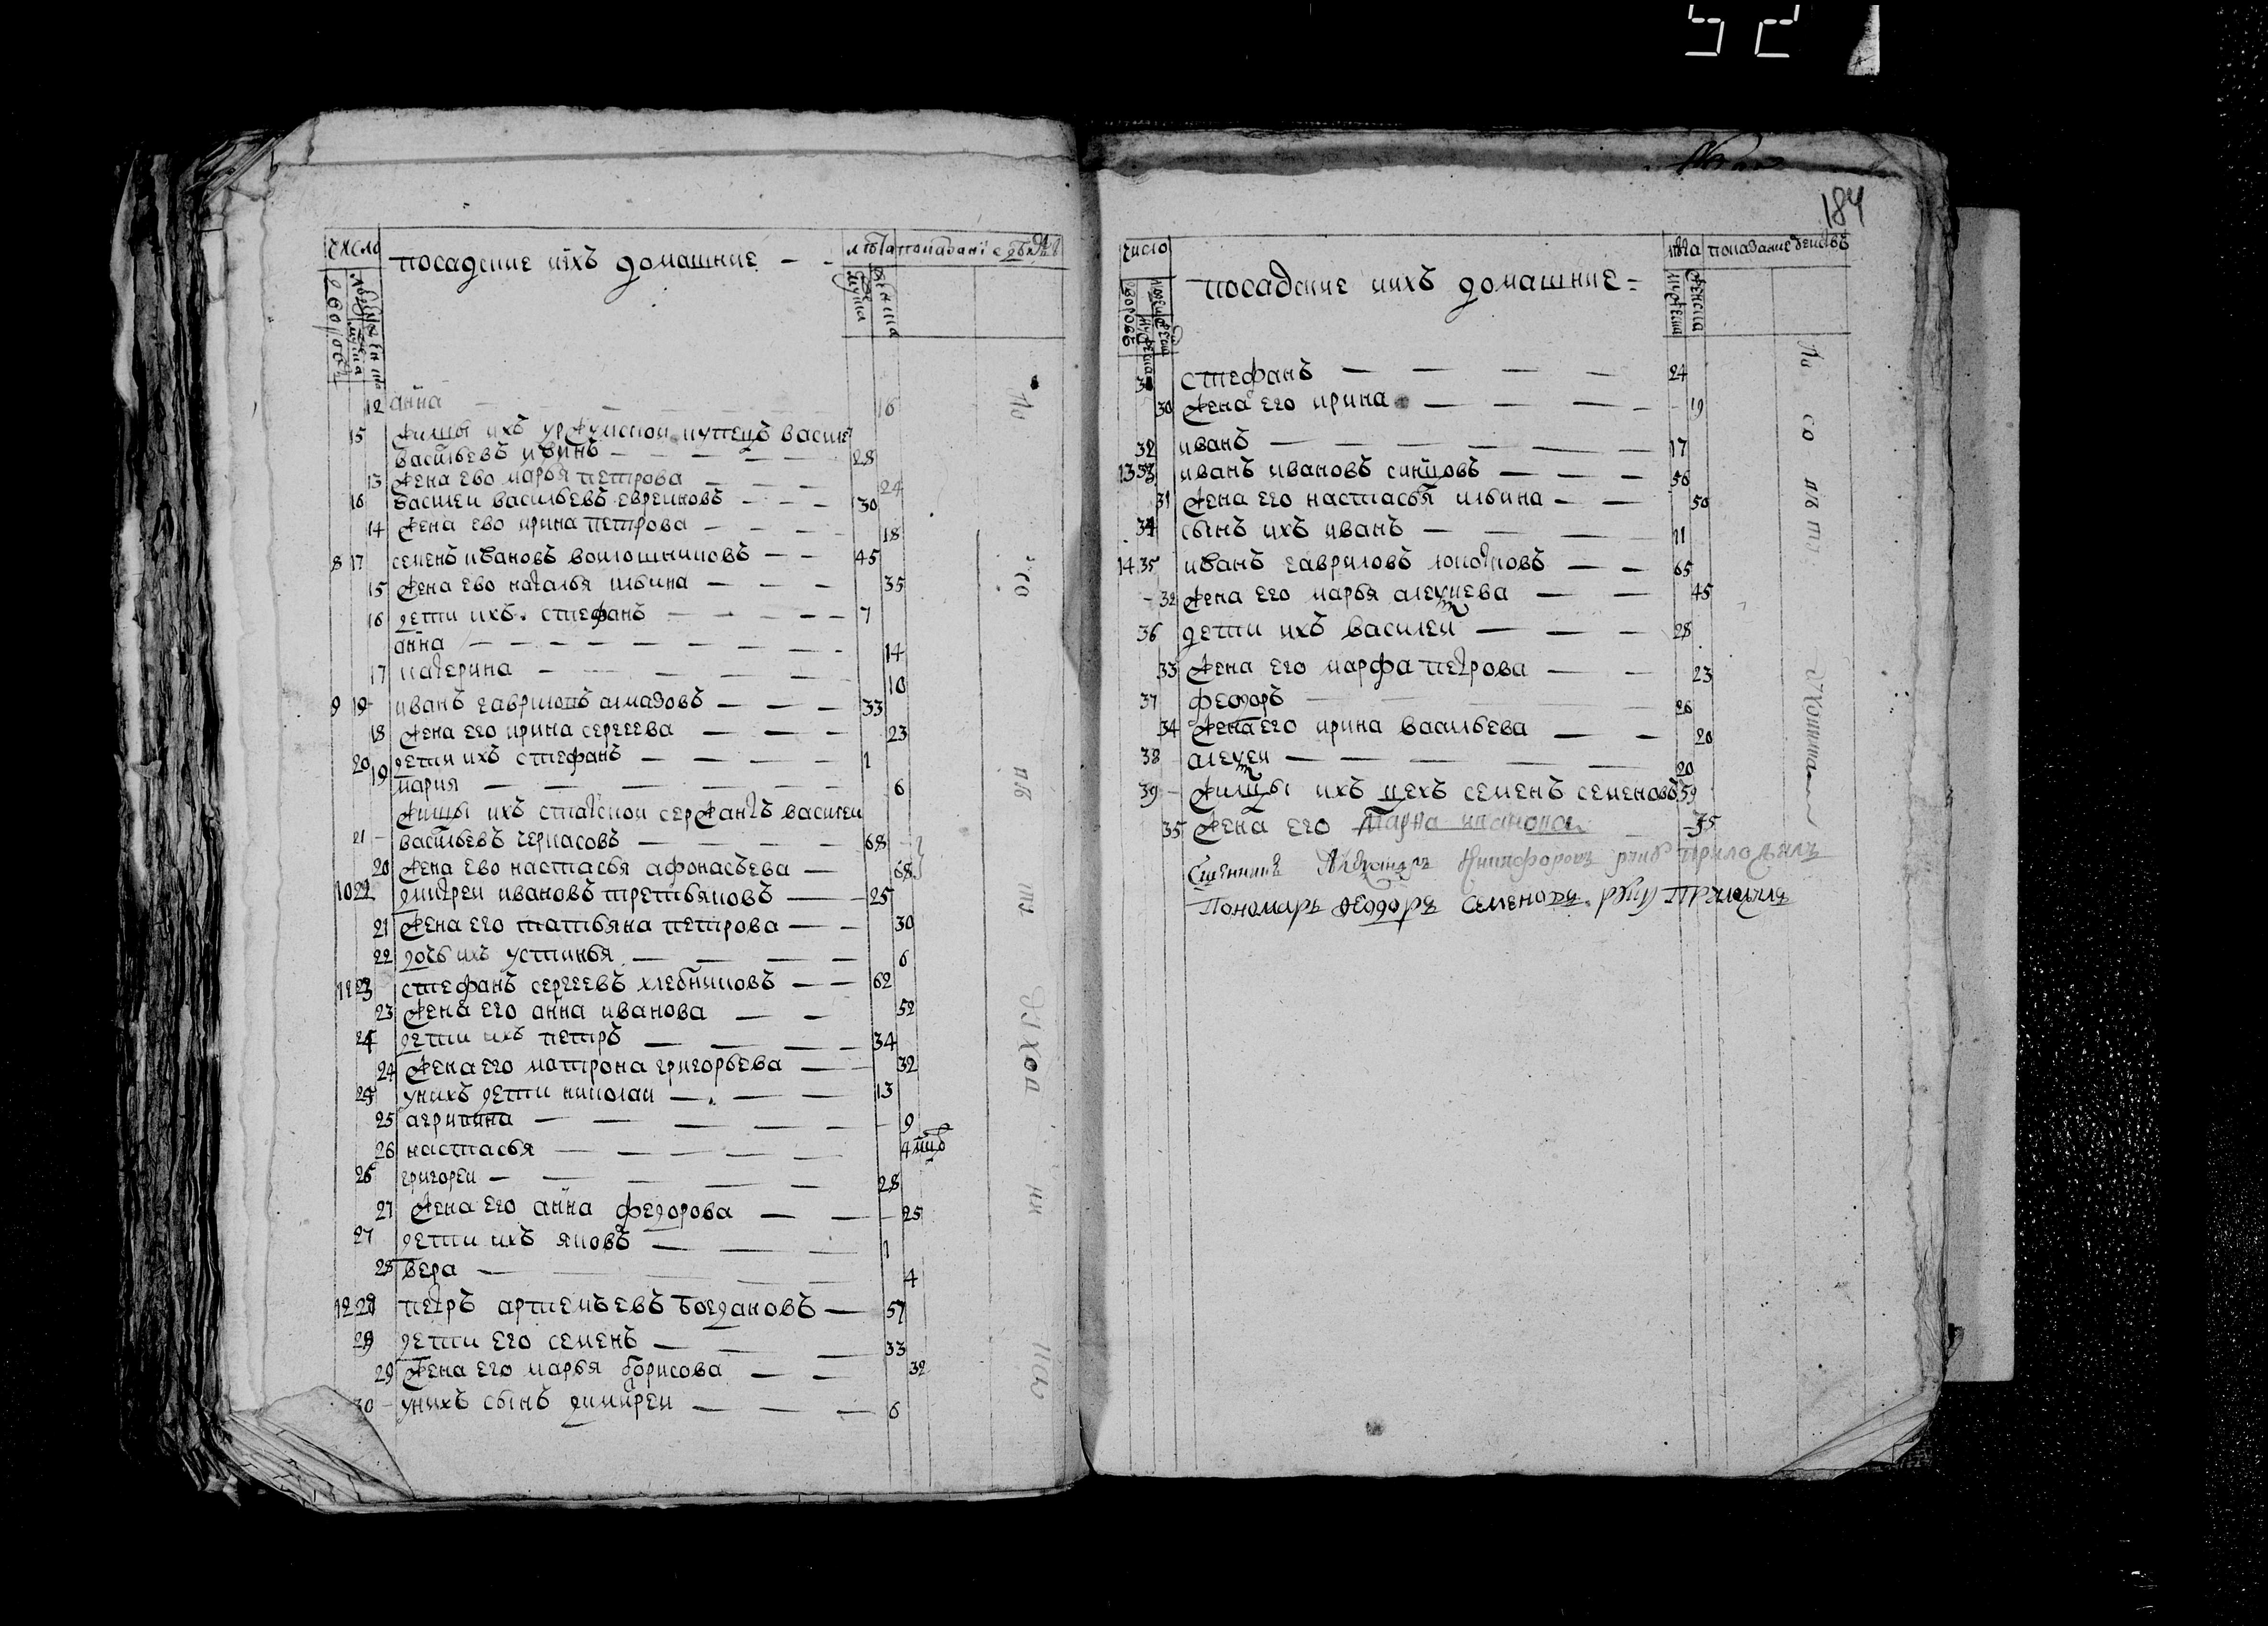 52
число посадские ихъ домашние лѣта показание
12 анна 16
15 жилцы ихъ уржумской купецъ василе
васильевъ ивинъ 28
13 жена ево марья петрова 24
16 василеи васильевъ евреиновъ 30
14 жена ево ирина петрова 18
8 17 семенъ ивановъ волошниковъ 45
15 жена ево наталья ильина 35
16 дети ихъ стефанъ 7
анна 14
17 катерина 10
9 19 иванъ гавриловъ алмазовъ 33
18 жена его ирина сергеева 23
20 дети ихъ стефанъ 1
19 мария 6
жилцы ихъ статской сержантъ василеи
21 васильевъ черкасовъ 68
20 жена ево настасья афонасьева 68
10 22 дмитреи ивановъ третьяковъ 25
21 жена его татьяна петрова 30
22 дочь ихъ устинья 6
23 стефанъ сергеевъ хлебниковъ 62
23 жена его анна иванова 52
24 дети ихъ петръ 34
24 жена его матрона григорьева 32
25 унихъ дети николаи 13
25 агрипина 9
26 настасья 4
26 григореи 28
27 жена его анна федорова 25
27 дети ихъ яковъ 1
28 вера 4
12 28 петръ артемьевъ богдановъ 57
29 дети его семенъ 33
29 жена его марья борисова 32
30 унихъ сынъ димитреи 6
184
число посадские ихъ домашние лѣта показание действъ
31 стефанъ 24
30 жена его ирина 19
32 иванъ 17
13 33 иванъ ивановъ синцовъ 56
31 жена его настасья ильина 50
34 сынъ ихъ иванъ 11
14 35 иванъ гавриловъ 65
32 жена его марья алексиева 45
36 дети ихъ василеи 28
33 жена его марфа петрова 23
37 федоръ 26
34 жена его ирина васильева 20
38 алексеи 20
39 жилцы ихъ цехъ семенъ семеновъ 59
35 жена его марна иванова 35
Сщенникъ Александръ Никифоровъ руку приложилъ
Пономарь Федоръ Семеновъ руку Приложилъ